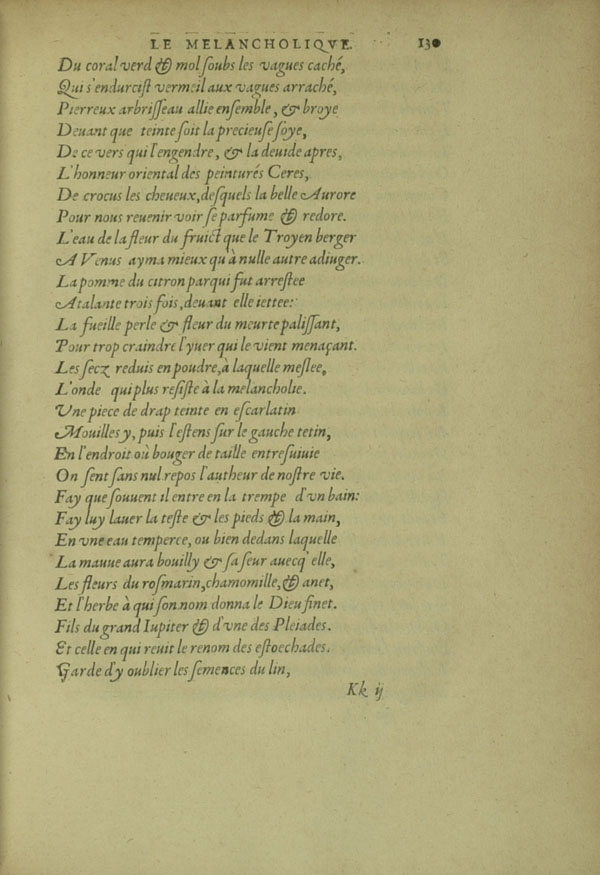 LE MELANCHOLIQVE. 130
Du coral verd & mol soubs les vagues caché,
Qui s'endurcist vermeil aux vagues arraché,
Pierreux arbrisseau allie ensemble, & broye
Deuant que teinte soit la precieuse soye,
De ce vers qui l'engendre, & la deuide apres,
L'honneur oriental des peinturés Ceres,
De crocus les cheueux, desquels la belle Aurore
Pour nous reuenir voir se parfume & redore.
L'eau de la fleur du fruict que le Troyen berger
A Venus ayma mieux qu'à nulle autre adiuger.
La pomme du citron par qui fut arrestee
Atalante trois fois, deuant elle iettee:
La fueille perle & fleur du meurte palissant,
Pour trop craindre l'yuer qui le vient menaçant.
Les secz reduis en poudre, à laquelle meslee,
L'onde qui plus resiste à la melancholie.
Vne piece de drap teinte en escarlatin
Mouilles y, puis l'estens sur le gauche tetin,
En l'endroit où bouger de taille entresuiuie
On sent sans nul repos l'autheur de nostre vie.
Fay que souuent il entre en la trempe d'vn bain:
Fay luy lauer la teste & les pieds & la main,
En vne eau temperce, ou bien dedans laquelle
La mauue aura bouilly & sa seur auecq' elle,
Les fleurs du rosmarin, chamomille, & anet,
Et l'herbe à qui son nom donna le Dieu finet.
Fils du grand Iupiter & d'vne des Pleiades.
Et celle en qui reuit le renom des estoechades.
Garde d'y oublier les semences du lin,
Kk ij